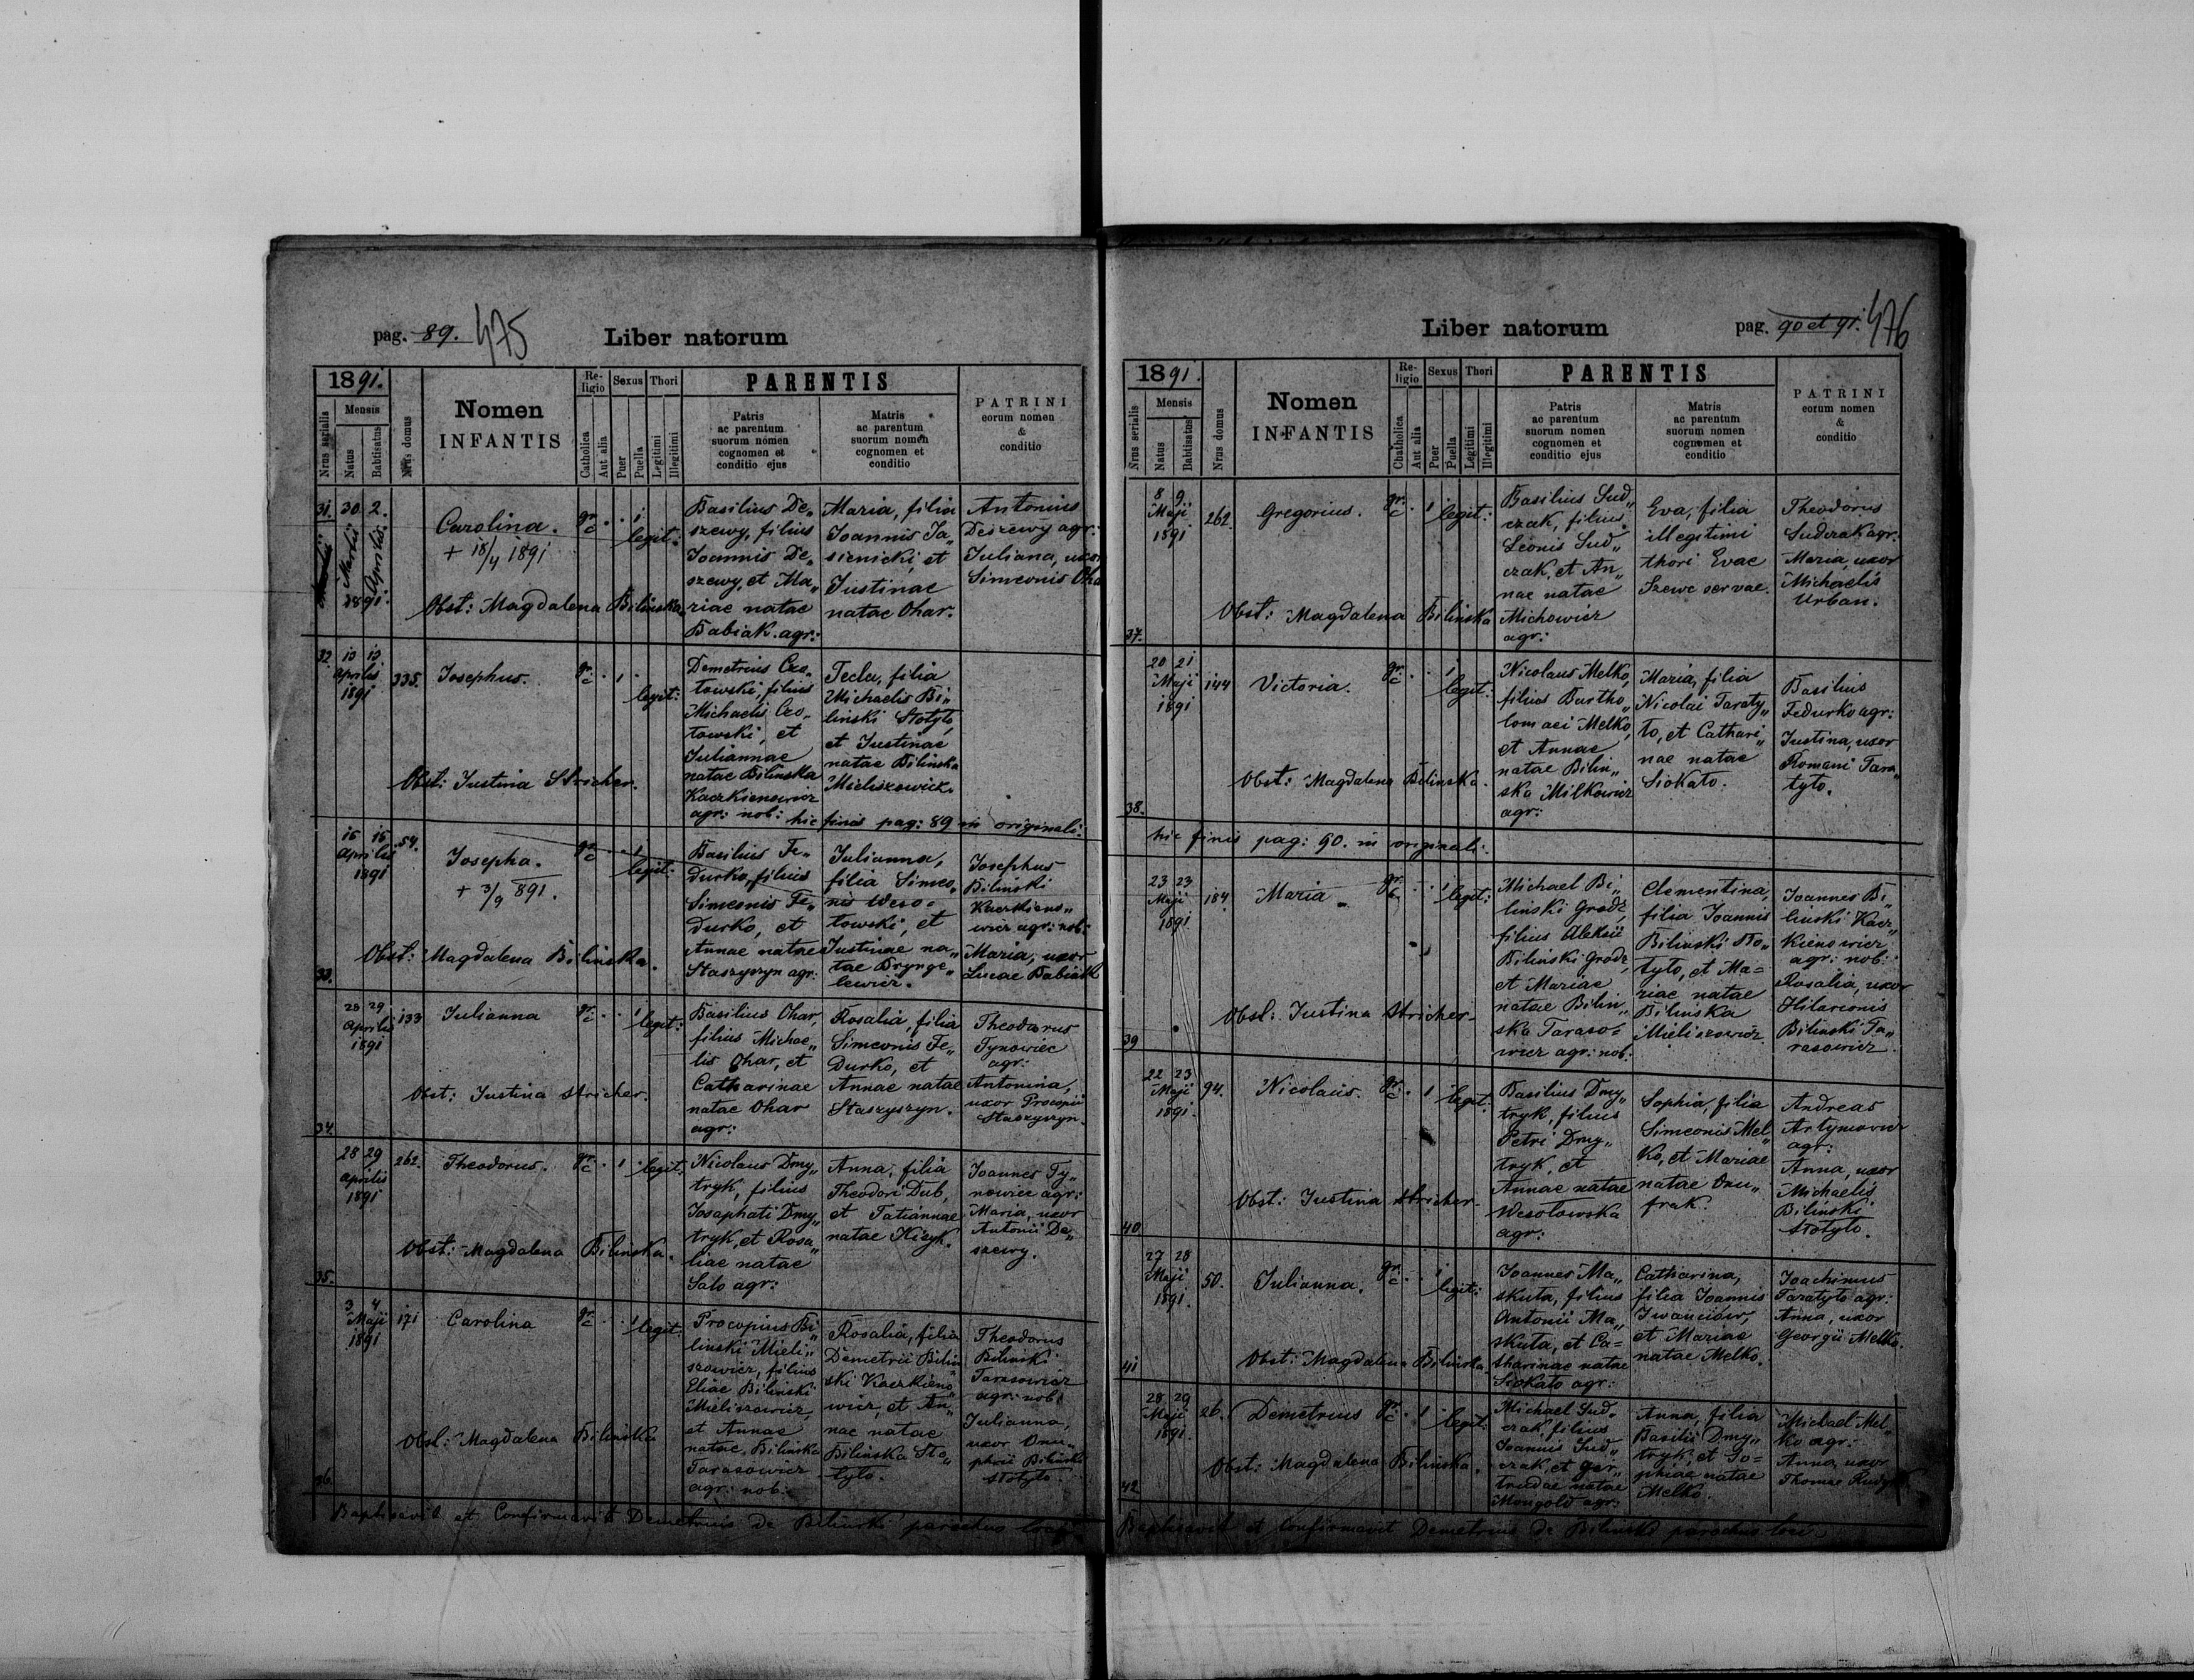 pag. 89. 475
Liber natorum
1891.
Nrus serialis
Mensis
Natus
Babtisatus
Nrus domus
Nomen
INFANTIS
Religio
Catholica
Aut alia
Sexus
Puer
Puella
Thori
Legitimi
Illegitimi
PARENTIS
Patris
ac parentum
suorum nomen
cognomen et
conditio ejus
Matris
ac parentum
suorum nomen
cognomen et
conditio
PATRINI
eorum nomen
&
conditio
31. 30 2.
Martii Aprilis
1891.
Carolina.
+ 18/4 1891
Obst: Magdalena Bilinska
gr. c. 1
legit:
Basilius De„
szewy, filius
Joannis De„
szewy, et Ma„
riae natae
Babiak. agr:
Maria, filia
Joannis Ja„
sienicki, et
Justinae
natae Ohar.
Antonius
Deszewy agr:
Juliana, uxor
Simeonis
32. 10 10
Aprilis
1891
335.
Josephus.
Obst: Justina Stricher.
gr. c. 1
legit:
Demetrius Czo„
towski, filius
Michaelis Czo„
towski, et
Juliannae
natae Bilinska
Kaczkienowicz
agr: nob:
Tecla, filia
Michaelis Bi„
linski Stotyto,
et Justinae
natae Bilinska
Mieliszowicz.
hic finis pag: 89 in originali.
33. 16 16
Aprilis
1891
54.
Josepha.
+ 3/9 891.
Obst: Magdalena Bilinska.
gr. c. 1
legit:
Basilius Fe„
durko, filius
Simeonis Fe„
durko, et
Annae natae
Staszyszyn agr:
Julianna,
filia Simeo„
nis Weso„
towski, et
Justinae na„
tae Brynge„
lewicz.
Josephus
Bilinski
Kaczkieno„
wicz agr: nob:
Maria, uxor
Lucae Babiak
34. 28 29
Aprilis
1891
133
Julianna
Obst: Justina Stricher.
gr. c. 1
legit:
Basilius Ohar,
filius Michae„
lis Ohar, et
Catharinae
natae Ohar
agr:
Rosalia, filia
Simeonis Fe„
durko, et
Annae natae
Staszyszyn.
Theodorus
Tynowiec
agr:
Antonina,
uxor Procopii
Staszyszyn.
35. 28 29
Aprilis
1891
262.
Theodorus.
Obst: Magdalena Bilinska.
gr. c. 1
legit:
Nicolaus Dmy„
tryk, filius
Josaphati Dmy„
tryk, et Rosa„
liae natae
Salo agr:
Anna, filia
Theodori Dub,
et Tatiannae
natae Kizyk.
Joannes Ty„
nowiec agr:
Maria, uxor
Antonii De„
szewy.
36. 3 4
Maji
1891
171
Carolina
Obst: Magdalena Bilinska
gr. c. 1
legit:
Procopius Bi„
linski Mieli„
szowicz, filius
Eliae Bilinski
Mieliszowicz,
et Annae
natae Bilinska
Tarasowicz
agr: nob:
Rosalia, filia
Demetrii Bilin
ski Kaczkieno„
wicz, et An„
nae natae
Bilinska Sto„
tyto.
Theodorus
Bilinski
Tarasowicz
agr: nob:
Julianna,
uxor Onu„
phrii Bilinski
Stotyto.
Baptisavit et Confirmavit Demetrius de Bilinski parochus loci
Liber natorum
pag. 90 et 91. 476
1891.
Nrus serialis
Mensis
Natus
Babtisatus
Nrus domus
Nomen
INFANTIS
Religio
Chatholica
Aut alia
Sexus
Puer
Puella
Thori
Legitimi
Illegitimi
PARENTIS
Patris
ac parentum
suorum nomen
cognomen et
conditio ejus
Matris
ac parentum
suorum nomen
cognomen et
conditio
PATRINI
eorum nomen
&
conditio
37. 8 9.
Maji
1891
262.
Gregorius.
Obst: Magdalena Bilinska
gr. c. 1
legit:
Basilius Sud„
czak, filius
Leonis Sud„
czak, et An„
nae natae
Michowicz
agr:
Eva, filia
illegitimi
thori Evae
Szewc servae.
Theodorus
Sudczak agr.
Maria, uxor
Michaelis
Urban.
38. 20 21
Maji
1891
144
Victoria.
Obst: Magdalena Bilinska.
gr. c. 1
legit:
Nicolaus Melko,
filius Bartho„
lomaei Melko,
et Annae
natae Bilin„
ska Milkowicz
agr:
Maria, filia
Nicolai Taraty„
to, et Cathari„
nae natae
Siokato.
Basilius
Fedurko agr:
Justina, uxor
Romani Tara„
tyto.
hic finis pag: 90. in originali.
39 23 23
Maji
1891
184
Maria
Obst: Justina Stricher.
gr. c. 1
legit:
Michael Bi„
linski Grodz,
filius Aleksii
Bilinski Grodz,
et Mariae
natae Bilin„
ska Taraso=
wicz agr: nob:
Clementina,
filia Joannis
Bilinski Sto„
tyto, et Ma=
riae natae
Bilinska
Mieliszowicz
Joannes Bi„
linski Kacz„
kienowicz
agr: nob:
Rosalia, uxor
Hilarionis
Bilinski Ta„
rasowicz
40. 22 23
Maji
1891.
94.
Nicolaus.
Obst: Justina Stricher.
gr. c. 1
legit:
Basilius Dmy„
tryk, filius
Petri Dmy„
tryk, et
Annae natae
Wesotowska
agr:
Sophia, filia
Simeonis Mel„
ko, et Mariae
natae Onu„
frak.
Andreas
Artymowicz
agr:
Anna, uxor
Michaelis
Bilinski
Stotyto.
41 27 28
Maji
1891.
50.
Julianna.
Obst: Magdalena Bilinska
gr. c. 1
legit:
Joannes Ma„
skuta, filius
Antonii Ma„
skuta, et Ca=
tharinae natae
Siokato agr:
Catharina,
filia Joannis
Iwanciów,
et Mariae
natae Melko.
Joachimus
Taratyto agr:
Anna, uxor
Georgii Melko.
42. 28 29
Maji
1891.
26.
Demetrius
Obst: Magdalena Bilinska.
gr. c. 1
legit:
Michael Sud„
czak, filius
Joannis Sud„
czak, et Ger„
trudae natae
Mongold agr:
Anna, filia
Basilii Dmy„
tryk, et So=
phiae natae
Melko.
Michael Mel„
ko agr:
Anna, uxor
Thomae
Baptisavit et Confirmavit Demetrius de Bilinski parochus loci